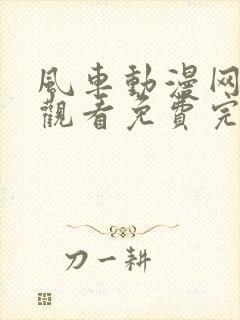 風車動漫网
觀看免費完
刀一耕